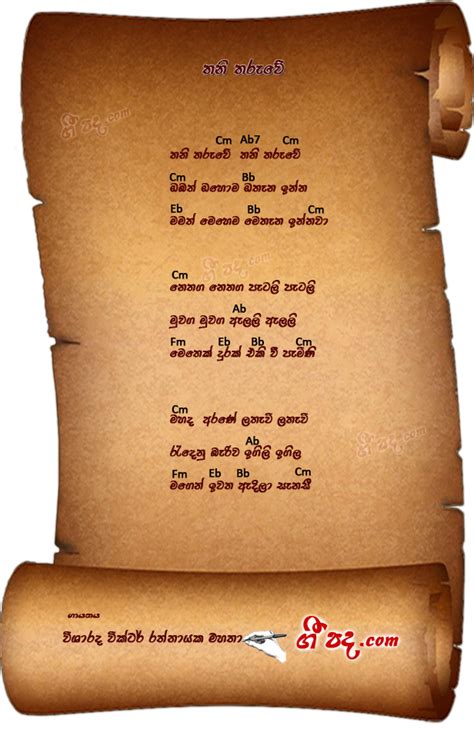 තනි තරුවේ
ගී පද.com
Cm Ab7 Cm
තනි තරුවේ තනි තරුවේ
Cm Bb
ඔබත් ඔහොම ඔතැන ඉන්න
Eb Bb Cm
මමත් මෙහෙම මෙතැන ඉන්නවා
ගී පද.com
Cm
නෙතග නෙතග පැටලි පැටලි
Ab
මුවග මුවග ඇලලි ඇලලි
Fm Eb Bb Cm
මෙතෙක් දුරක් එකි වී පැමිණි
Cm
මහද අරණේ ලතැවී ලතැවී
ගී පද.com
Ab
රැදෙනු බැරිව ඉගිලි ඉගිල
Fm Eb Bb Cm
මගෙන් ඉවත ඇදිලා සැනසී
ගායනය
විශාරද වික්ටර් රත්නායක මහතා
ගී පද.com